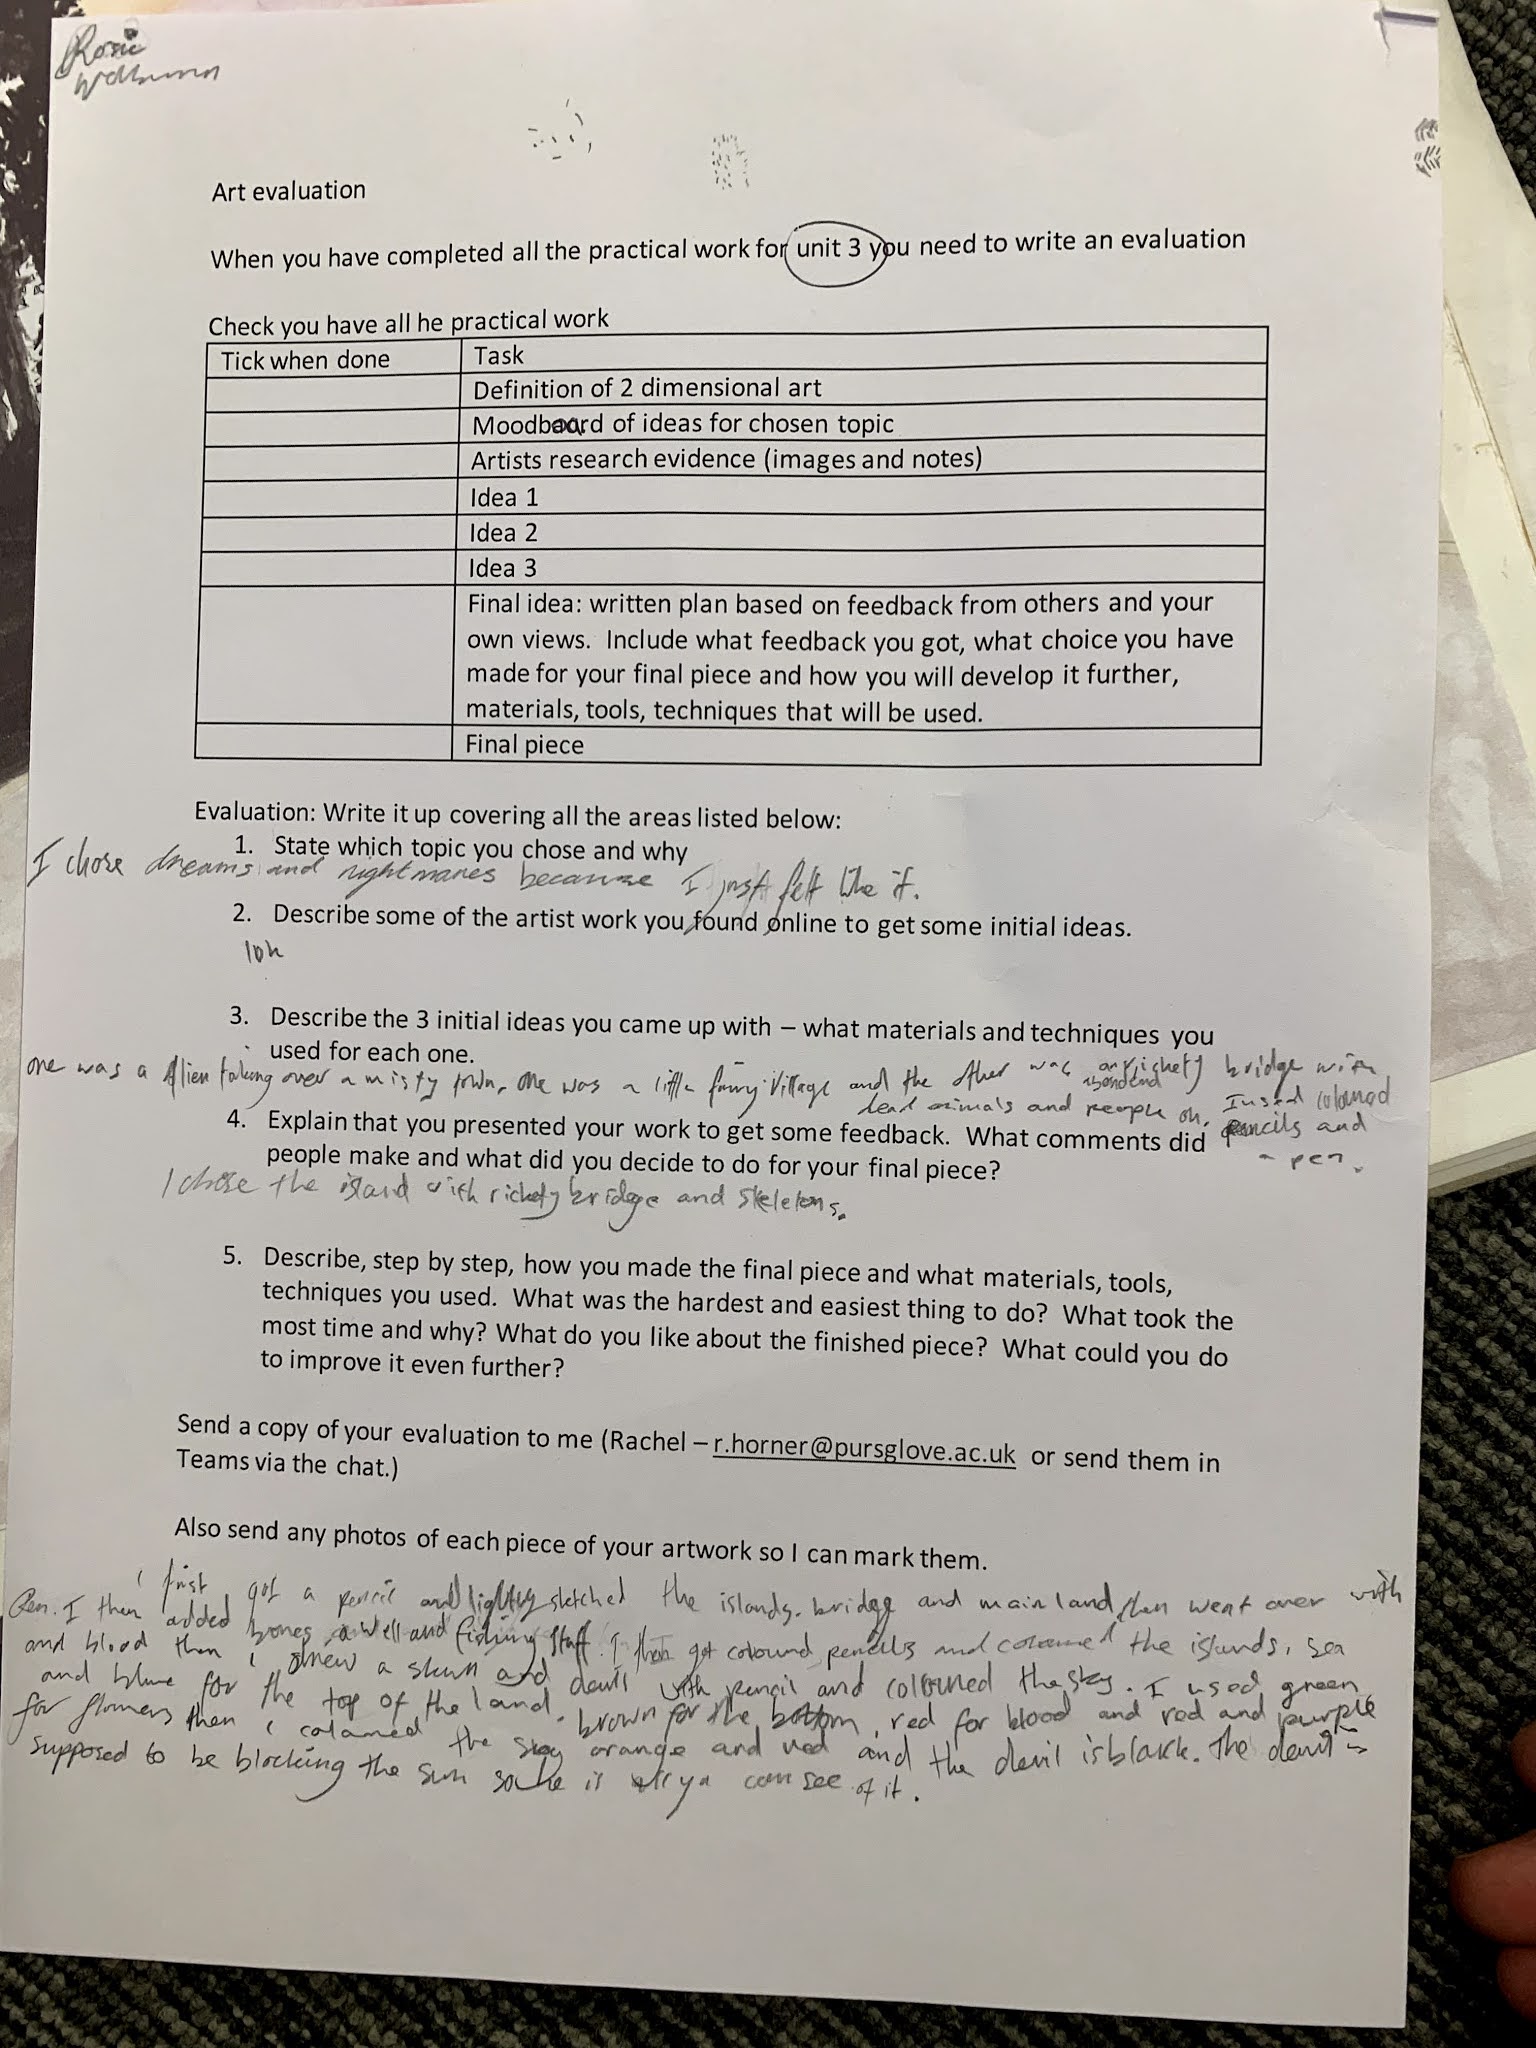 Rosie
Art evaluation
When you have completed all the practical work for unit 3 you need to write an evaluation
Check you have all he practical work
Tick when done Task
Definition of 2 dimensional art
Moodboard of ideas for chosen topic
Artists research evidence (images and notes)
Idea 1
Idea 2
Idea 3
Final idea: written plan based on feedback from others and your
own views. Include what feedback you got, what choice you have
made for your final piece and how you will develop it further,
materials, tools, techniques that will be used.
Final piece
Evaluation: Write it up covering all the areas listed below:
1. State which topic you chose and why
I chose dreams and nightmares because I just felt like it.
2. Describe some of the artist work you found online to get some initial ideas.
3. Describe the 3 initial ideas you came up with – what materials and techniques you
used for each one.
one was a Alien taking over a misty town. one was a little fairy village and the other was an rickety bridge with
dead animals and people on. I used coloured
4. Explain that you presented your work to get some feedback. What comments did
pencils and
people make and what did you decide to do for your final piece?
a pen.
I chose the island with rickety bridge and skeletons.
5. Describe, step by step, how you made the final piece and what materials, tools,
techniques you used. What was the hardest and easiest thing to do? What took the
most time and why? What do you like about the finished piece? What could you do
to improve it even further?
Send a copy of your evaluation to me (Rachel – r.horner@pursglove.ac.uk or send them in
Teams via the chat.)
Also send any photos of each piece of your artwork so I can mark them.
i first got a pencil and lightly sketched the islands. bridge and mainland then went over with
Pen. I then added bones, a well and fishing stuff. I then got colourd pencils and coloured the islands, sea
and blood then i drew a skun and devil with pencil and coloured the sky. I used green
and blue for the top of the land. brown for the bottom, red for blood and red and purple
for flowers then i coloured the sky orange and red and the devil is black. The devil is
supposed to be blocking the sun so he is all ya can see of it.